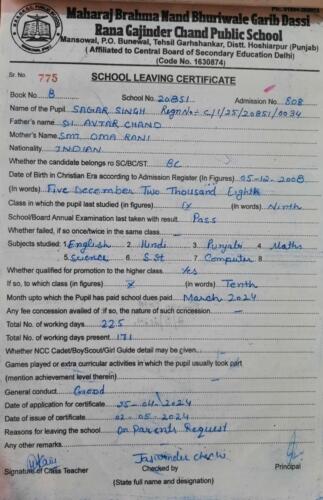 Maharaj Brahma Nand Bhuriwale Garib Dassi
Rana Gajinder Chand Public School
Mansowal, P.O. Bunewal, Tehsil Garhshankar, Distt. Hoshiarpur (Punjab)
( Affiliated to Central Board of Secondary Education Delhi)
(Code No. 1630874)
Sr. No. 775 SCHOOL LEAVING CERTIFICATE
Book No. 8 School No. 20851 Admission No. 808
Name of the Pupil SAGAR SINGH Regn No:- C/1/25/20851/0034
Father's name SH. AVTAR CHAND
Mother's Name SMT. OMA RANI
Nationality INDIAN
Whether the candidate belongs to SC/BC/ST BC
Date of Birth in Christian Era according to Admission Register (In Figures) 05-12-2008
(In words) Five December Two Thousand Eighth
Class in which the pupil last studied (in figures) IX (In words) Ninth
School/Board Annual Examination last taken with result Pass
Whether failed, if so once/twice in the same class
Subjects studied: 1 English 2 Hindi 3 Punjabi 4 Maths
5 Science 6 S.St 7 Computer 8
Whether qualified for promotion to the higher class Yes
If so, to which class (in figures) X (in words) Tenth
Month upto which the Pupil has paid school dues paid March 2024
Any fee concession availed of :if so, the nature of such concession
Total No. of working days 225
Total No. of working days present 171
Whether NCC Cadet/BoyScout/Girl Guide detail may be given
Games played or extra curricular activities in which the pupil usually took part
(mention achievement level therein)
General conduct Good
Date of application for certificate 25-04-2024
Date of issue of certificate 02-05-2024
Reasons for leaving the school On Parents Request
Any other remarks
Signature of Class Teacher Checked by Principal
(State full name and designation)